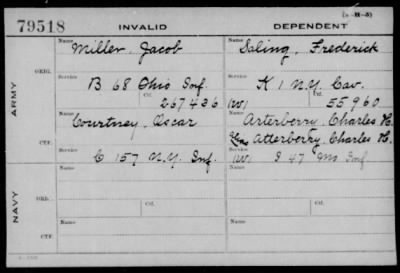 79518 INVALID DEPENDENT
Name Miller, Jacob Name Saling, Frederick
ARMY
ORIG. Service B 68 Ohio Inf. Service K 1 N.Y. Cav.
Ctf. 267436 (W) Ctf. 55960
Name Courtney, Oscar Name Arterberry, Charles H.
Atterberry, Charles H.
CTF. Service C 157 N.Y. Inf. (W) I 47 Mo Inf
NAVY
ORD. Name Ctf. Name Ctf.
CTF. Name Name